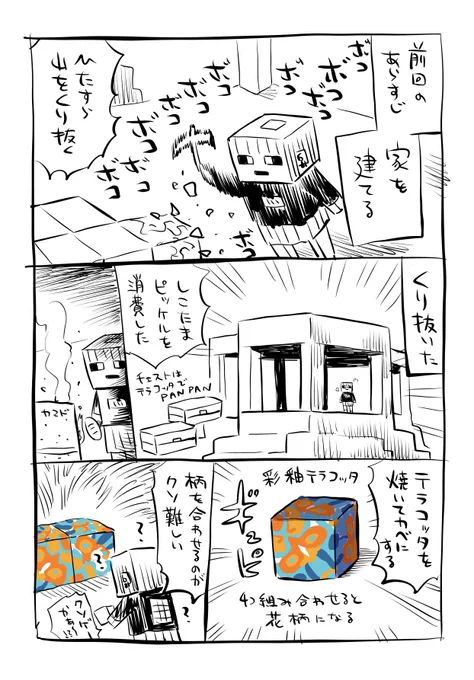 前回の
あらすじ
家を
建てる
ボコ
ボコ
ボコ
ボコ
ボコ
ボコ
ボコ
ボコ
ボコ
ひたすら
山をくり抜く
くり抜いた
しこたま
ピッケルを
消費した
チェストは
テラコッタで
PANPAN
カマド
テラコッタを
焼いてカベに
する
彩釉テラコッタ
4つ組み合わせると
花柄になる
柄を合わせるのが
クソ難しい
?
?
?
クソが